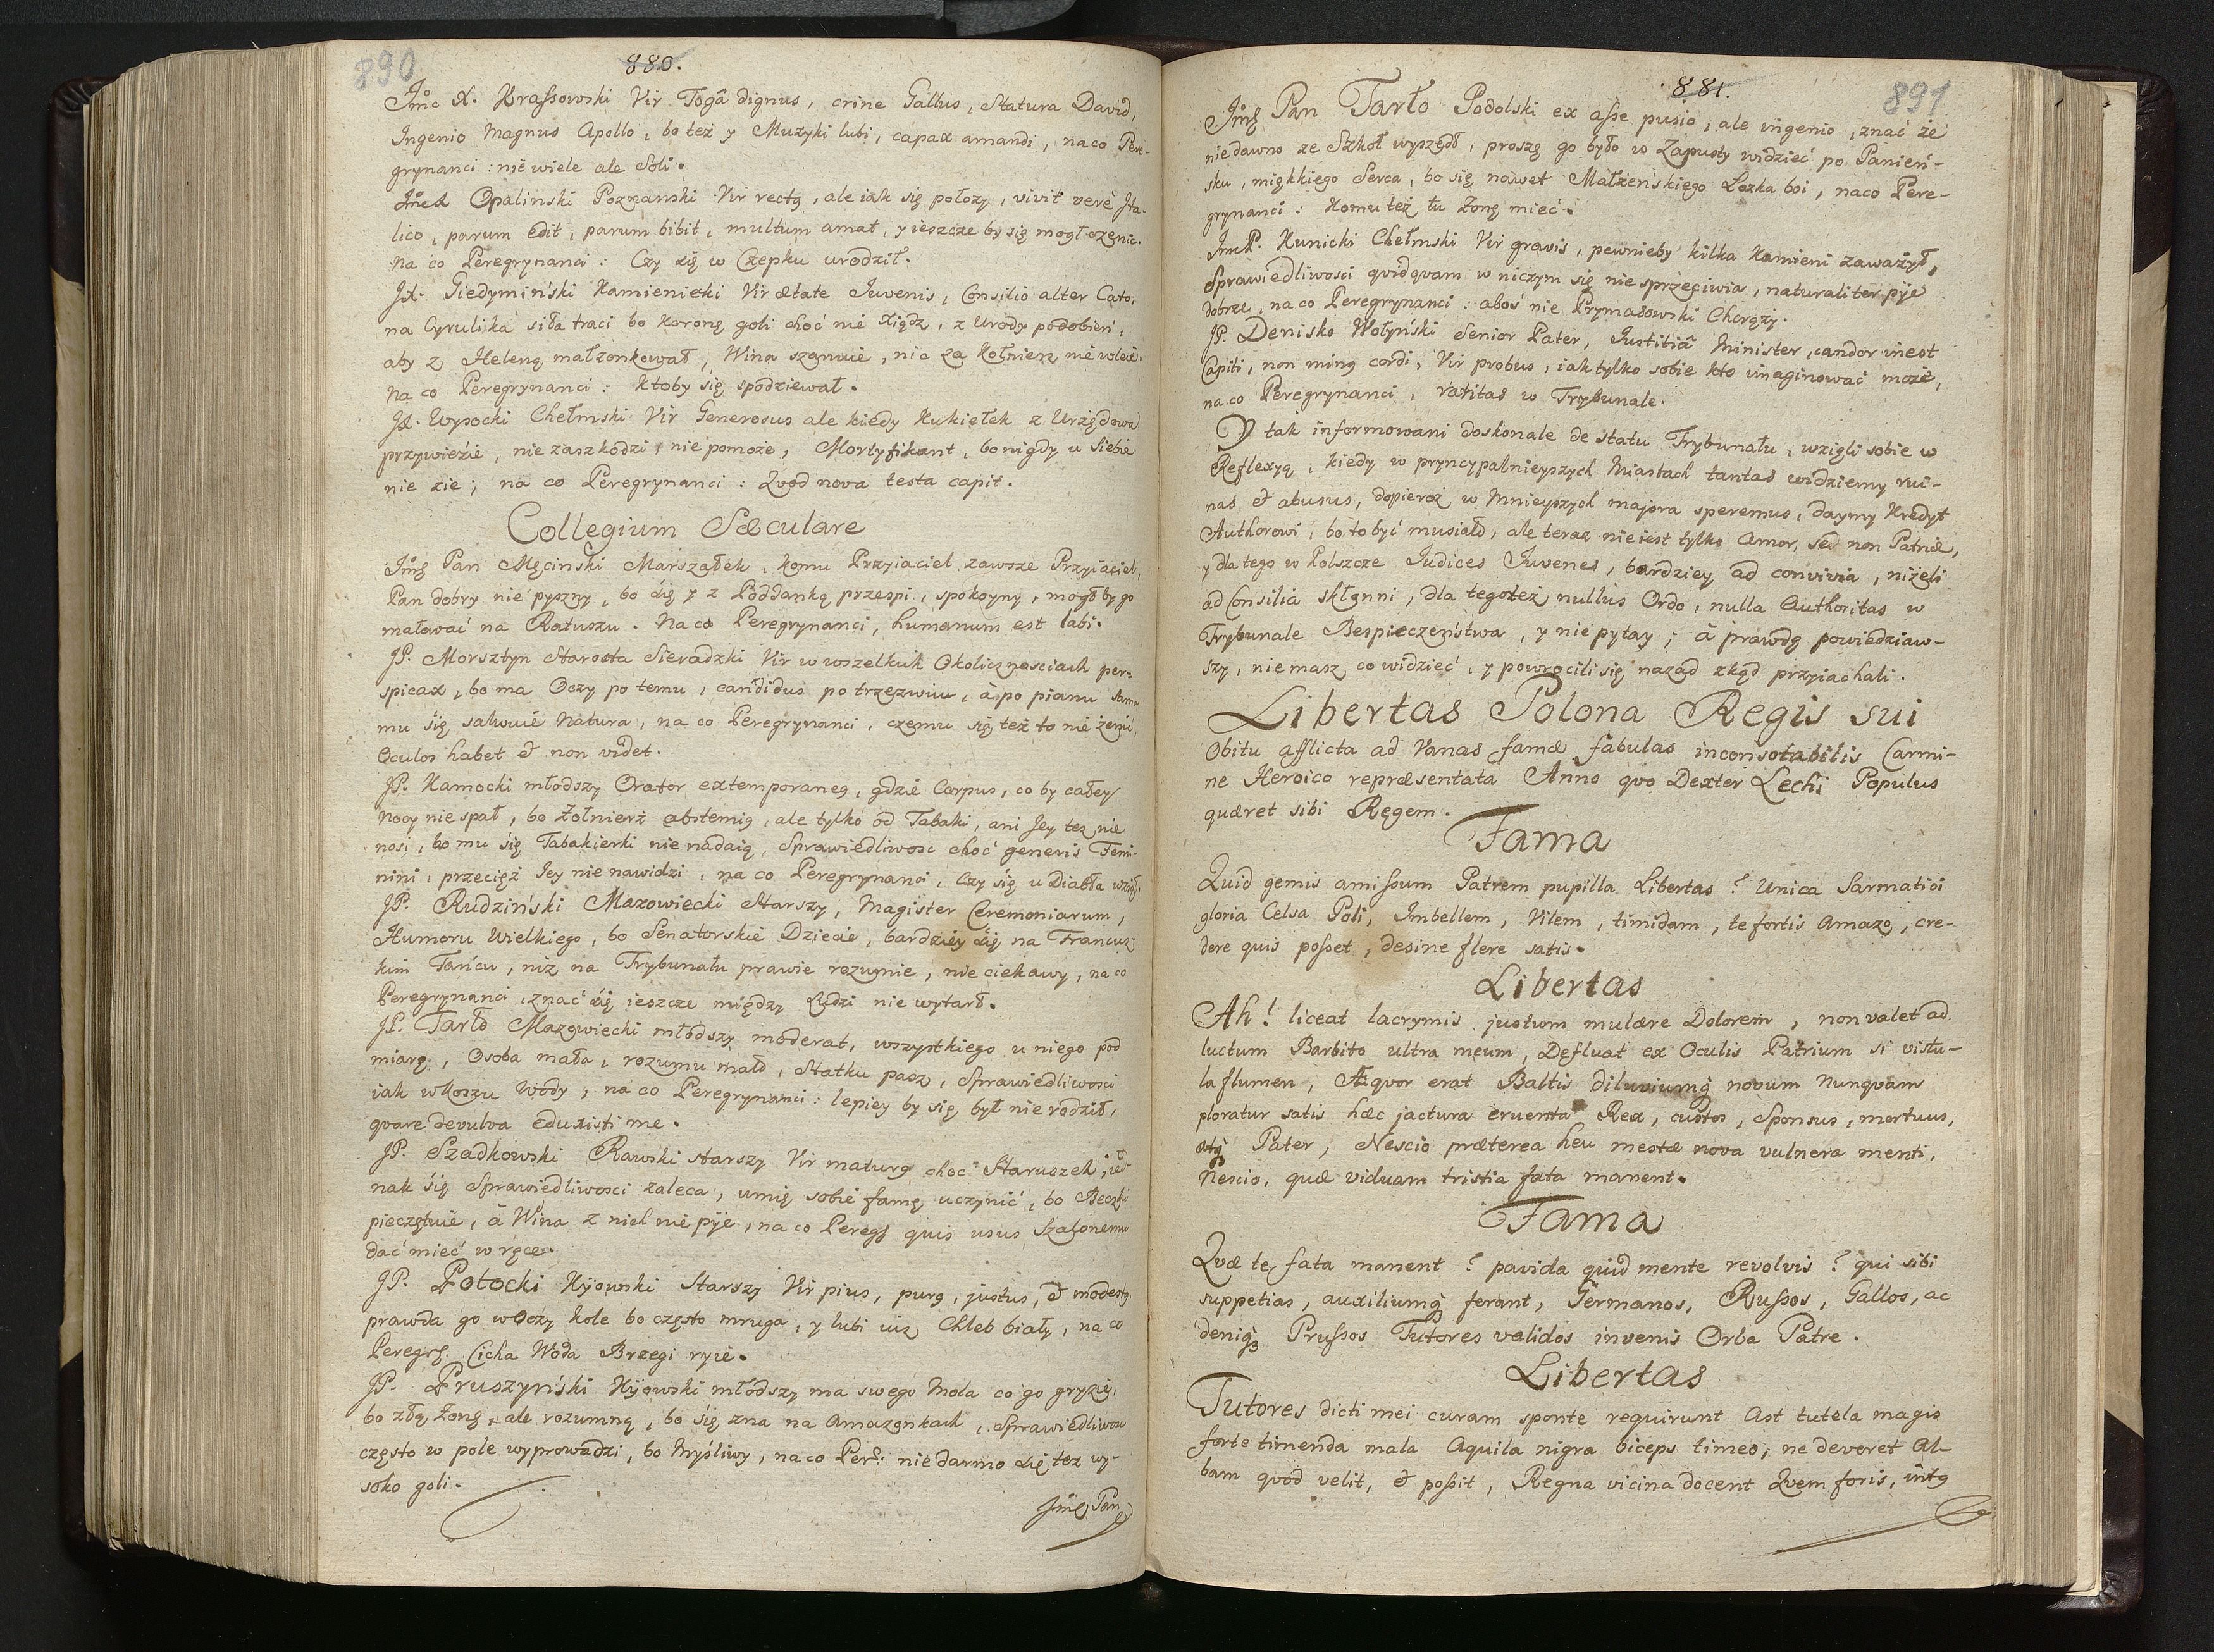 890
880.
Jmc X. Krassowski Vir Togâ dignus, crine Gallus, Statura David,
Ingenio Magnus Apollo, bo też y Muzyki lubi, capax amandi, na co Pere-
grynanci: nie wiele ale Soli.
Opalinski Poznanski Vir rectg, ale iak się położy, vivit verè Ita-
lico, parum edit, parum bibit, multum amat, y ieszcze by się mogł ożenic.
Na co Peregrynanci: Czy się w Czepku urodził.
JX. Giedyminski Kamieniecki Vir ætate Juvenis, Consilio alter Cato,
na Cyrulika siła traci bo Koronę goli choć nie Xiądz, z Urody podobien,
aby z Heleną małżonkował, Wina szanuie, nic za Kołnierz nie wleie.
na co Peregrynanci: Ktoby się spodziewał.
JX. Wysocki Chełmski Vir Generosus ale kiedy Kukiełek z Urzędowa
przywieźie, nie zaszkodzi, nie pomoże, Mortyfikant, bo nigdy u Siebie
nie zie; na co Peregrynanci: Qvod nova testa capit.
Collegium Sæculare
Jmę Pan Męcinski Marszałek, komu Przyiaciel zawsze Przyiaciel,
Pan dobry nie pyszny, bo się y z Poddanką przespi, spokoyny, mogł by go
malować na Ratuszu. Na co Peregrynanci, humanum est labi.
JP. Morsztyn Starosta Sieradzki Vir w wszelkich Okolicznasciach per-
spicax, bo ma Oczy po temu, candidus po trzezwiu, à po pianu samu
mu się salwuie Natura, na co Peregrynanci, czemu się też to nie żeni,
Oculos habet et non videt.
JP. Kamocki młodszy Orator extemporaneg, gdzie Corpus, co by całey
Nocy nie spał, bo Żołnierz abstemig, ale tylko od Tabaki, ani Jey też nie
nosi, bo mu się Tabakierki nie nadaią, Sprawiedliwosc choć generis Femi-
nini, przecięż Jey nie nawidzi, na co Peregrynanci, Czy się u Diabła wziął.
JP. Rudziński Mazowiecki Starszy, Magister Ceremoniarum,
Humoru Wielkiego, bo Senatorskie Dziecie, bardziey się na Francuz
kim Tańcu, niż na Trybunału prawie rozumie, nie ciekawy, na co
Peregrynanci, znać się ieszcze między Ludzi nie wytarł.
JP. Tarło Mazowiecki młodszy moderat, wszystkiego u niego pod
miarę, Osoba mała, rozumu mało, Statku pasz, Sprawiedliwosci
iak w Koszu Wody, na co Peregrynanci: lepiey by się był nie rodził,
qvare de vulva eduxisti me.
JP. Szadkowski Rawski starszy Vir maturg choc Staruszek, ied-
nak się Sprawiedliwosci zaleca, umię sobie famę uczynić, bo Beczki
pieczętuie, à Wina z nich nie pije, na co Peregr quis usus Szalonemu
dać mieć w ręce.
JP. Potocki Kijowski Starszy Vir pius, purg, justus, et modestg,
prawda go w Oczy kole bo często mruga, y lubi iuż Chleb biały, na co
Peregr. Cicha Woda Brzegi ryie.
JP. Pruszyński Kijowski młodszy ma swego Mola co go gryzie,
bo złą Żonę, ale rozumną, bo się zna na Amazonkach, Sprawiedliwosc
często w pole wyprowadzi, bo Myśliwy, na co Per: nie darmo się też wy-
soko goli.
Jmę Pan
881.
891
Jmę Pan Tarło Podolski ex asse pusio, ale ingenio, znać że
niedawno ze Szkoł wyszedł, proszę go było w Zapusty widzieć po Panień-
sku, miękkiego Serca, bo się nawet Małżeńskiego Łożka boi, na co Pere-
grynanci: Komu też tu Żonę mieć.
JmP. Kunicki Chełmski Vir gravis, pewnieby kilka Kamieni zaważył,
Sprawiedliwosci qvidqvam w niczym się nie sprzeciwia, naturaliter pije
dobrze, na co Peregrynanci: aboś nie Prymasowski Chorąży.
JP. Denisko Wołyński Senior Pater, Justitiâ Minister, candor inest
Capiti, non ming cordi, Vir probus, iak tylko sobie kto imaginować może,
na co Peregrynanci, raritas w Trybunale.
Y tak informowani doskonale de statu Trybunału, wzięli sobie w
Reflexyą, kiedy w pryncypalnieyszych Miastach tantas widziemy rui-
nas et abusus, dopieroż w Mnieyszych majora speremus, daymy Kredyt
Authorowi, bo to być musiało, ale teraz nie iest tylko Amor, sed non Patriæ,
y dla tego w Polszcze Judices Juvenes, bardziey ad convivia, niżeli
ad Consilia skłonni, dla tegoteż nullus Ordo, nulla Authoritas w
Trybunale Bespieczeństwa, y nie pytay; à prawdę powiedziaw-
szy, nie masz co widzieć, y powrocili się nazad zkąd przyiachali.
Libertas Polona Regis sui
Obitu afflicta ad Vanas famæ fabulas inconsolabilis Carmi-
ne Heroico repræsentata Anno qvo Dexter Lechi Populus
quæret sibi Regem.
Fama
Quid gemis amissum Patrem pupilla Libertas? Unica Sarmatici
gloria Celsa Poli, Imbellem, Vilem, timidam, te fortis Amazo, cre-
dere quis posset, desine flere satis.
Libertas
Ah! liceat lacrymis justum mulære Dolorem, non valet ad
luctum Barbito ultra meum, Defluat ex Oculis Patrium si vistu-
la flumen, Æqvor erat Baltis diluviumq novum Nunqvam
ploratur satis hæc jactura cruenta Rex, custos, Sponsus, mortuus,
atq Pater, Nescio præterea heu mestæ nova vulnera menti,
Nescio, quæ viduam tristia fata manent.
Fama
Qvæ te fata manent? pavida quid mente revolvis? qui sibi
suppetias, auxiliumq ferant, Germanos, Russos, Gallos, ac
deniq Prussos Tutores validos invenis Orba Patre.
Libertas
Tutores dicti mei curam sponte requirunt Ast tutela magis
forte timenda mala Aquila nigra biceps timeo, ne devoret Al-
bam qvod velit, et possit, Regna vicina docent Qvem foris, intg